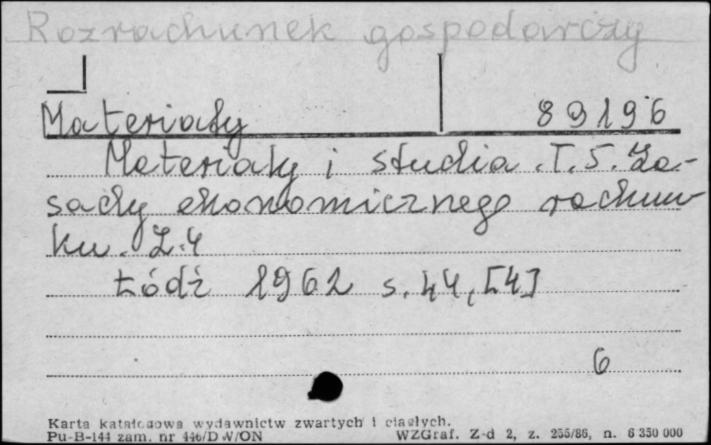 Rozrachunek gospodarczy
Materiały 89196
Materiały i studia. T. 5. Za-
sady ekonomicznego rachun-
ku. Z. 4
Łódź 1962 s. 44, [4]
6
Karta katalogowa wydawnictw zwartych i ciągłych.
Pu-B-144 zam. nr 446/DW/ON WZGraf. Z-d 2, z. 255/86, n. 6 350 000